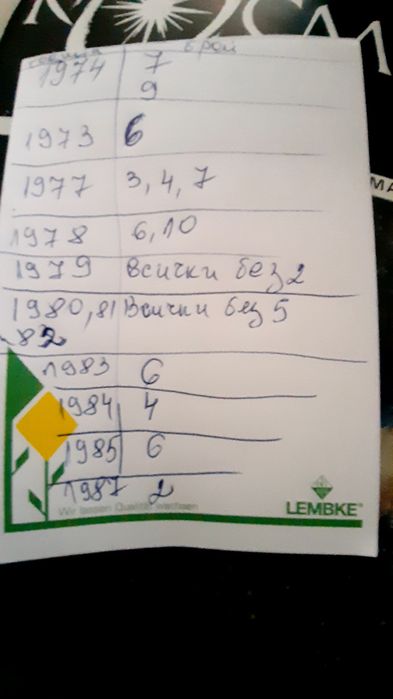 година брой
1974 7
9
1973 6
1977 3, 4, 7
1978 6, 10
1979 Всички без 2
1980, 81 Всички без 5
82
1983 6
1984 4
1985 6
1987 2
Wir lassen Qualität wachsen
LEMBKE®